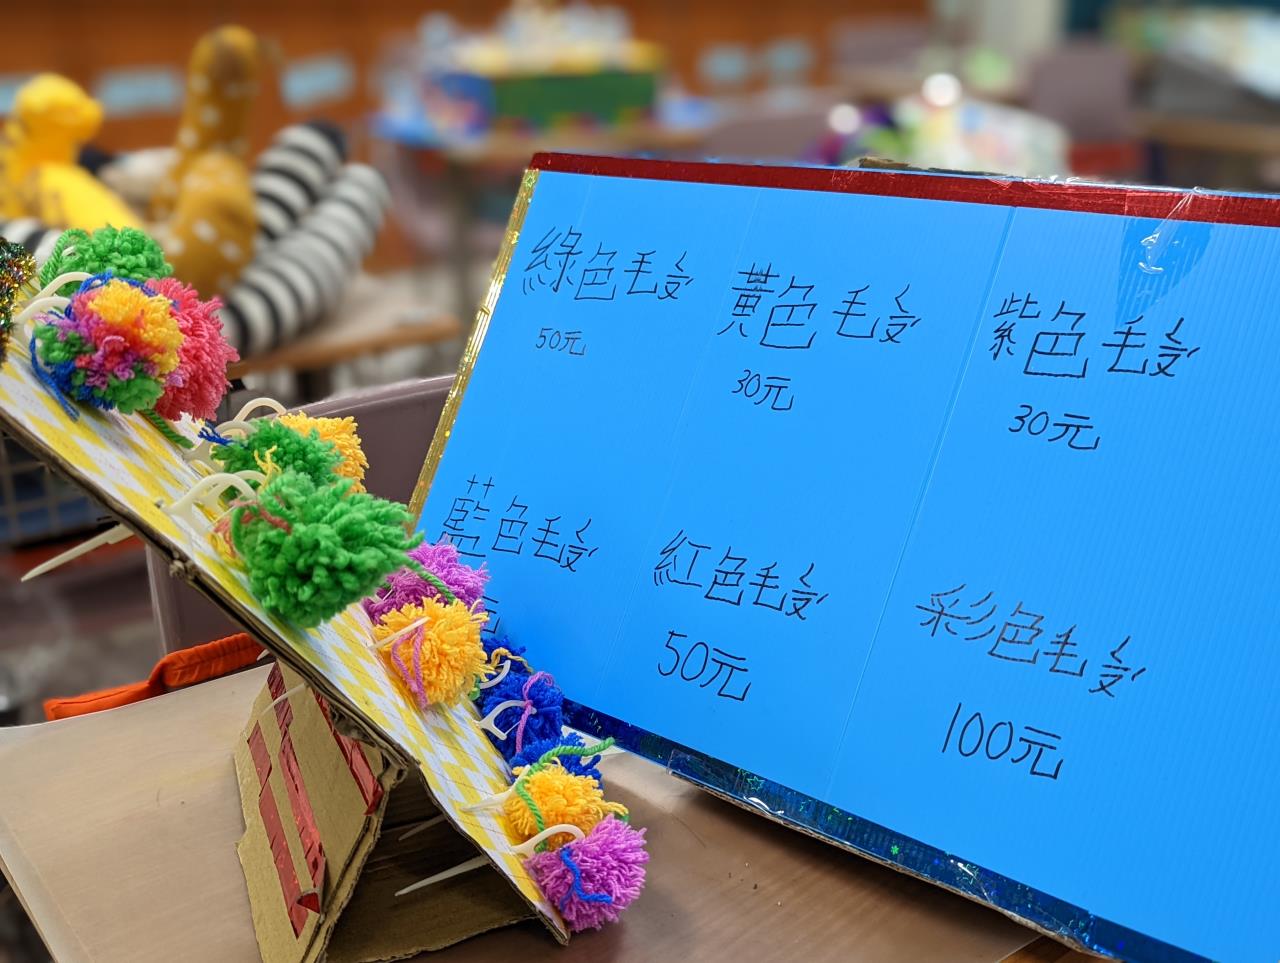 綠色毛
50元
黃色毛
30元
紫色毛
30元
藍色毛
元
紅色毛
50元
彩色毛
100元